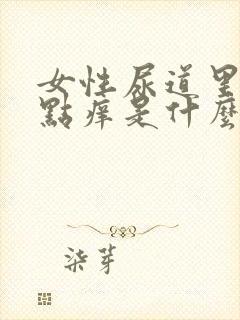 女性尿道里
點痒是什麼
柒芽